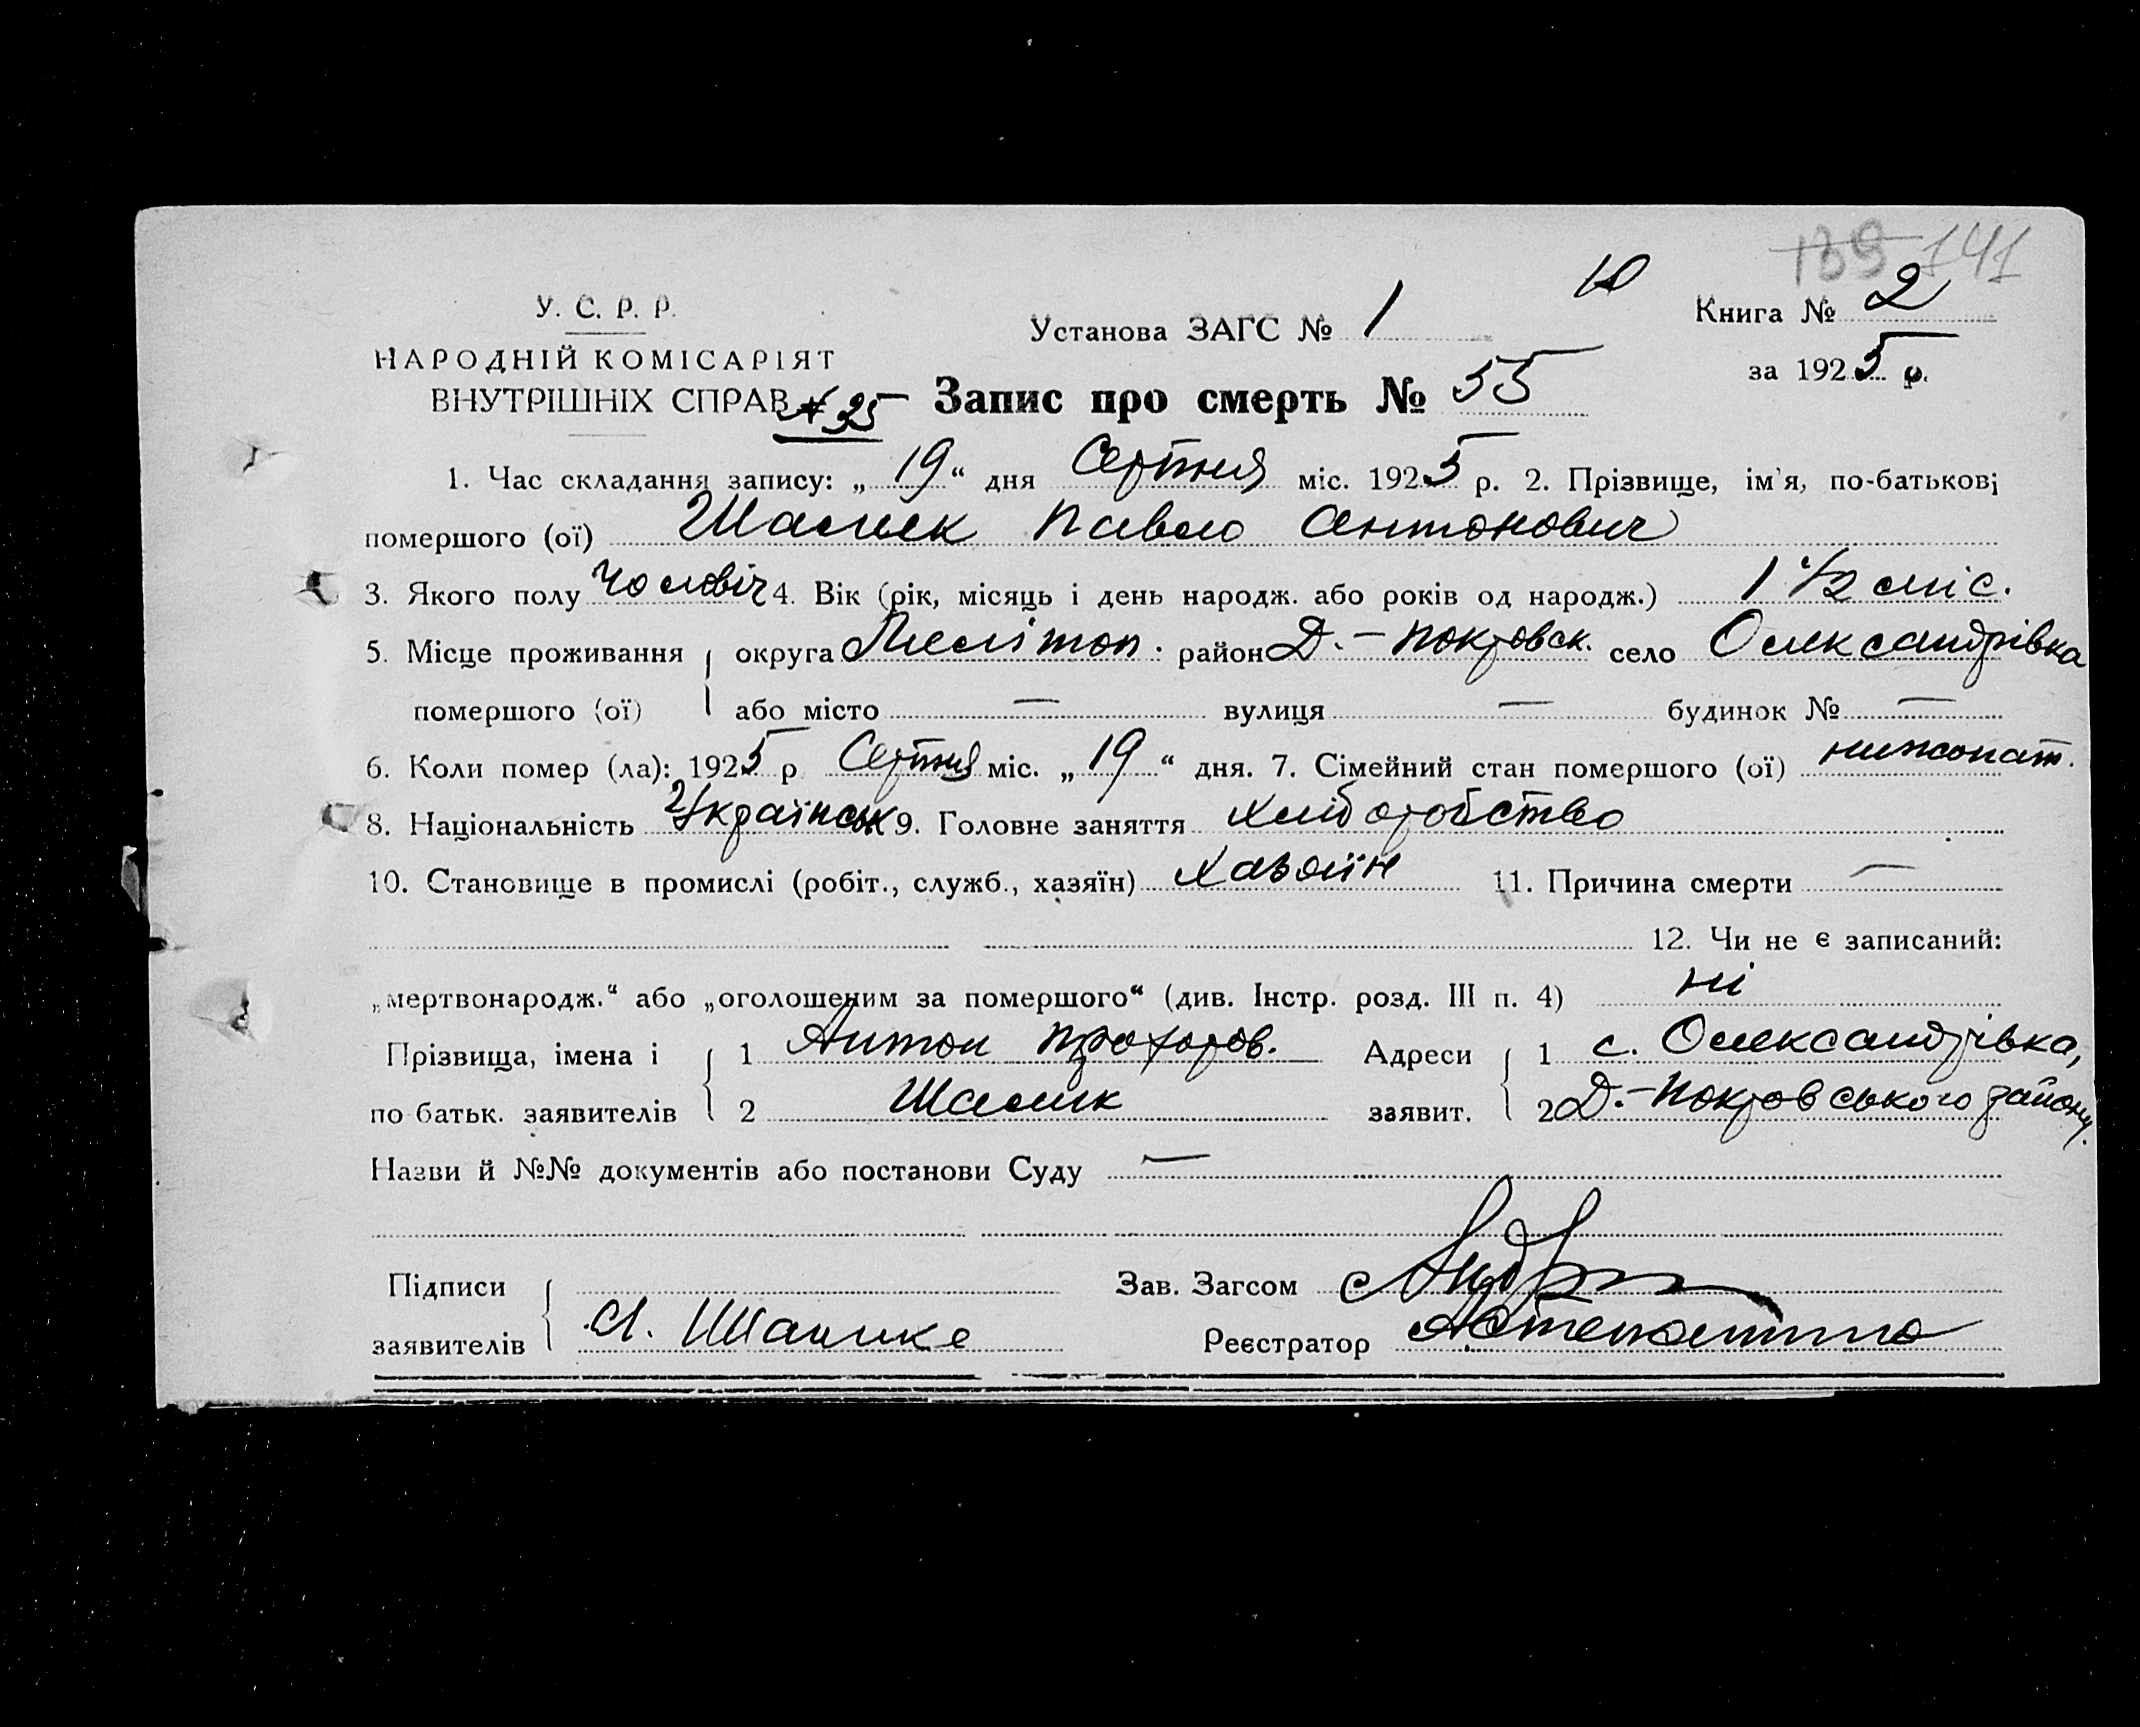 139 141
10
У. С. Р. Р.
Установа ЗАГС № 1
Книга № 2
НАРОДНІЙ КОМІСАРІЯТ
за 1925 р.
ВНУТРІШНІХ СПРАВ
№ 35
Запис про смерть № 55
1. Час складання запису: „19“ дня Серпня міс. 1925 р. 2. Прізвище, ім'я, по-батькові
помершого (ої) Шамлек Павло Антонович
3. Якого полу Чоловіч 4. Вік (рік, місяць і день народж. або років од народж.) 1 1/2 міс.
5. Місце проживання округа Мелітоп. район Д.-Покровск. село Олександрівка
помершого (ої) або місто — вулиця — будинок № —
6. Коли помер (ла): 1925 р Серпня міс. „19“ дня. 7. Сімейний стан помершого (ої) нижонат.
8. Національність Українськ 9. Головне заняття хліборобство
10. Становище в промислі (робіт., служб., хазяїн) Хазяїн 11. Причина смерти —
12. Чи не є записаний:
„мертвонародж.“ або „оголошеним за помершого“ (див. Інстр. розд. III п. 4) ні
Прізвища, імена і 1 Антон Прохоров. Адреси 1 с. Олександрівка,
по батьк. заявителів 2 заявит. 2 Д.-Покровського району.
Назви й №№ документів або постанови Суду —
Підписи Зав. Загсом
заявителів А. Реєстратор